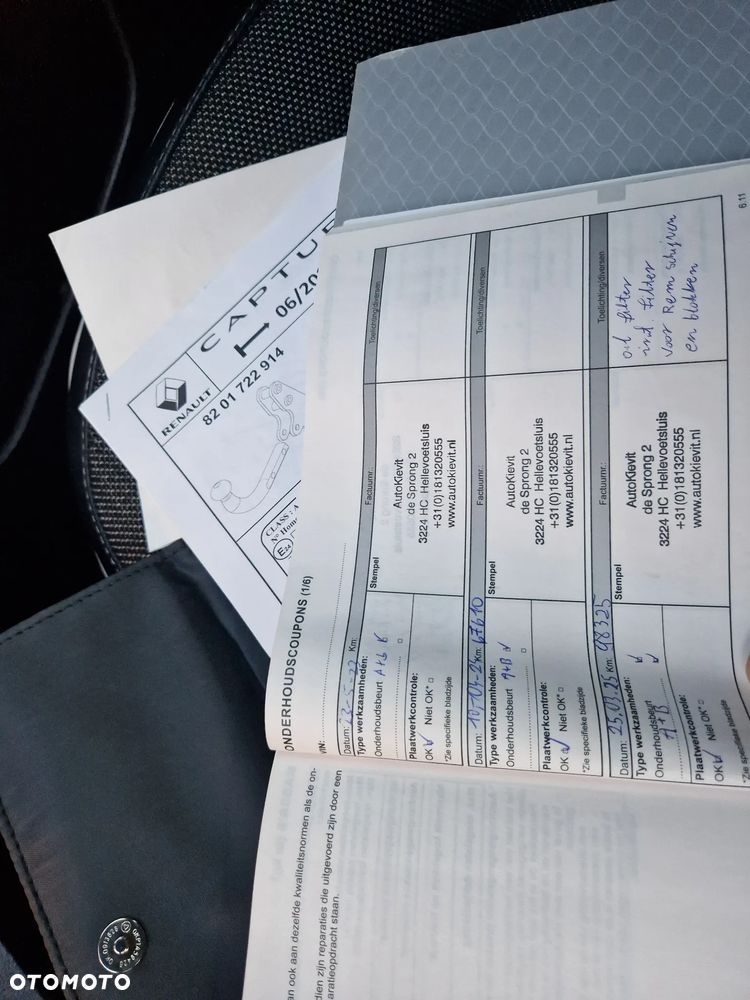 ONDERHOUDSCOUPONS (1/6)
VIN:
Datum: 23-5-22 Km:
Type werkzaamheden:
Onderhoudsbeurt A+B
Plaatwerkcontrole:
OK Niet OK*
*Zie specifieke bladzijde
Stempel
Factuurnr.:
Toelichting/diversen
AutoKievit
de Sprong 2
3224 HC Hellevoetsluis
+31(0)181320555
www.autokievit.nl
Datum: 10-04-24 Km: 67610
Type werkzaamheden:
Onderhoudsbeurt A+B
Plaatwerkcontrole:
OK Niet OK*
*Zie specifieke bladzijde
Stempel
Factuurnr.:
Toelichting/diversen
AutoKievit
de Sprong 2
3224 HC Hellevoetsluis
+31(0)181320555
www.autokievit.nl
Datum: 25.03.25 Km: 98325
Type werkzaamheden:
Onderhoudsbeurt
A+B
Plaatwerkcontrole:
OK Niet OK*
*Zie specifieke bladzijde
Stempel
Factuurnr.:
Toelichting/diversen
AutoKievit
de Sprong 2
3224 HC Hellevoetsluis
+31(0)181320555
www.autokievit.nl
filter
filter
voor Rem schijven
en blokken
6.11
an ook aan dezelfde kwaliteitsnormen als de on-
dien zijn reparaties die uitgevoerd zijn door een
aratieopdracht staan.
RENAULT
CAPTUR
06/20
82 01 722 914
CLASS : A
N° Homo
E24
OTOMOTO